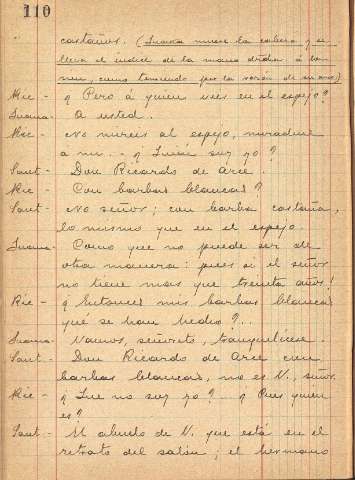 110
castaños. (Juana mueve la cabeza y se
lleva el índice de la mano drcha á la
sien, como temiendo por la razón de su amo)
Ric - ¿ Pero á quien veis en el espejo?
Juana - A usted.
Ric - No mireis al espejo, miradme
a mi. - ¿ Quién soy yo?
Sant - Don Ricardo de Arce.
Ric - Con barbas blancas?
Sant - No señor; con barba castaña,
lo mismo que en el espejo.
Juana - Como que no puede ser de
otra manera: pues si el señor
no tiene mas que treinta años!
Ric - ¿ Entonces mis barbas blancas
qué se han hecho?...
Juana - Vamos, señorito, tranquilícese.
Sant - Don Ricardo de Arce con
barbas blancas, no es V., señor.
Ric - ¿ Que no soy yo?... ¿ Pues quien
es?
Sant - El abuelo de V. que está en el
retrato del salón; el hermano